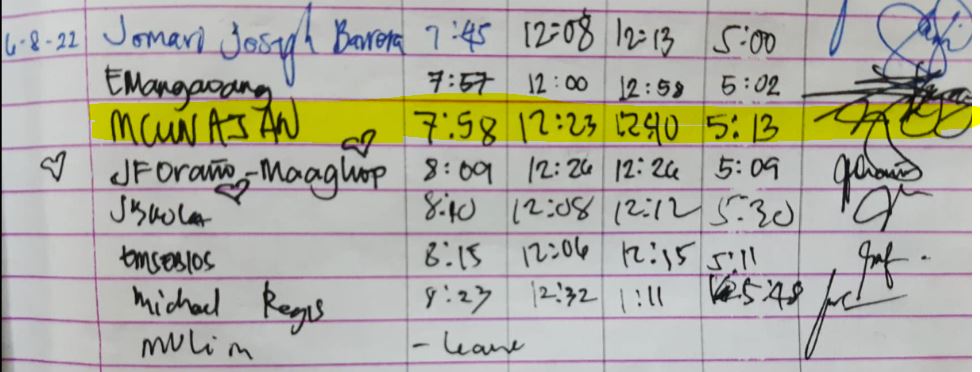 6-8-22 Jomari Joseph Barrera 7:45 12:08 12:13 5:00
EMangaoang 7:57 12:00 12:58 5:02
MCUNAJAN 7:58 12:23 12:40 5:13
JFOraño-Maaghop 8:09 12:26 12:26 5:09
8:10 12:08 12:12 5:30
8:15 12:06 12:15 5:11
Michael Regis 8:23 12:32 1:11 5:48
MVLim - Leave